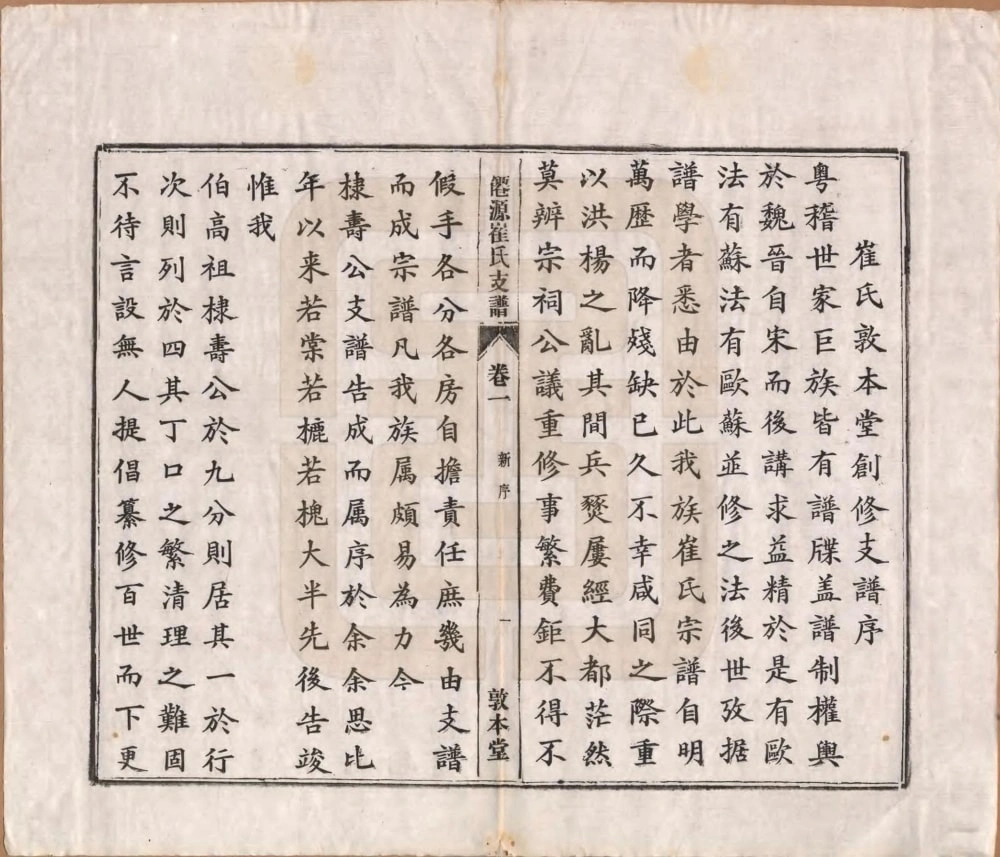 崔氏敦本堂創修支譜序
粤稽世家巨族皆有譜牒盖譜制權輿
於魏晉自宋而後講求益精於是有歐
法有蘇法有歐蘇並修之法後世攷据
譜學者悉由於此我族崔氏宗譜自明
萬歷而降殘缺已久不幸咸同之際重
以洪楊之亂其間兵燹屢經大都茫然
莫辨宗祠公議重修事繁費鉅不得不
僊源崔氏支譜 卷一 新序 一 敦本堂
假手各分各房自擔責任庶幾由支譜
而成宗譜凡我族属頗易為力今
棣壽公支譜告成而属序於余余思比
年以来若棠若樾若槐大半先後告竣
惟我
伯高祖棣壽公於九分則居其一於行
次則列於四其丁口之繁清理之難固
不待言設無人提倡纂修百世而下更